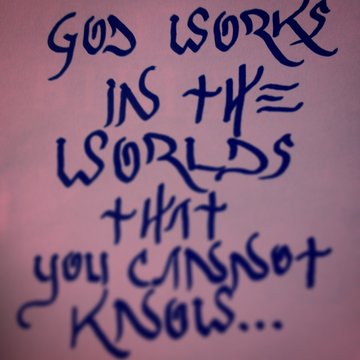 GOD WORKS
IN THE
WORLDS
THAT
YOU CANNOT
KNOW...